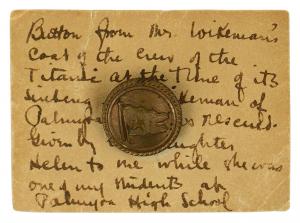 Button from Mr. Wikeman's
Coat of the Crew of the
Titanic at the time of its
Sinking keman of
Palmyra s rescued.
Given by ughter
Helen to me while she was
one of my students at
Palmyra High School